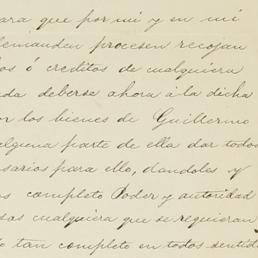 para que por mi y en mi
demanden procesen recojan
os ó creditos de cualquiera
da deberse ahora á la dicha
or los bienes de Guillermo
alguna parte de ella dar todos
sarios para ello, dandoles y
s completo Poder y autoridad
sas cualquiera que se requieran
o tan completo en todos sentid